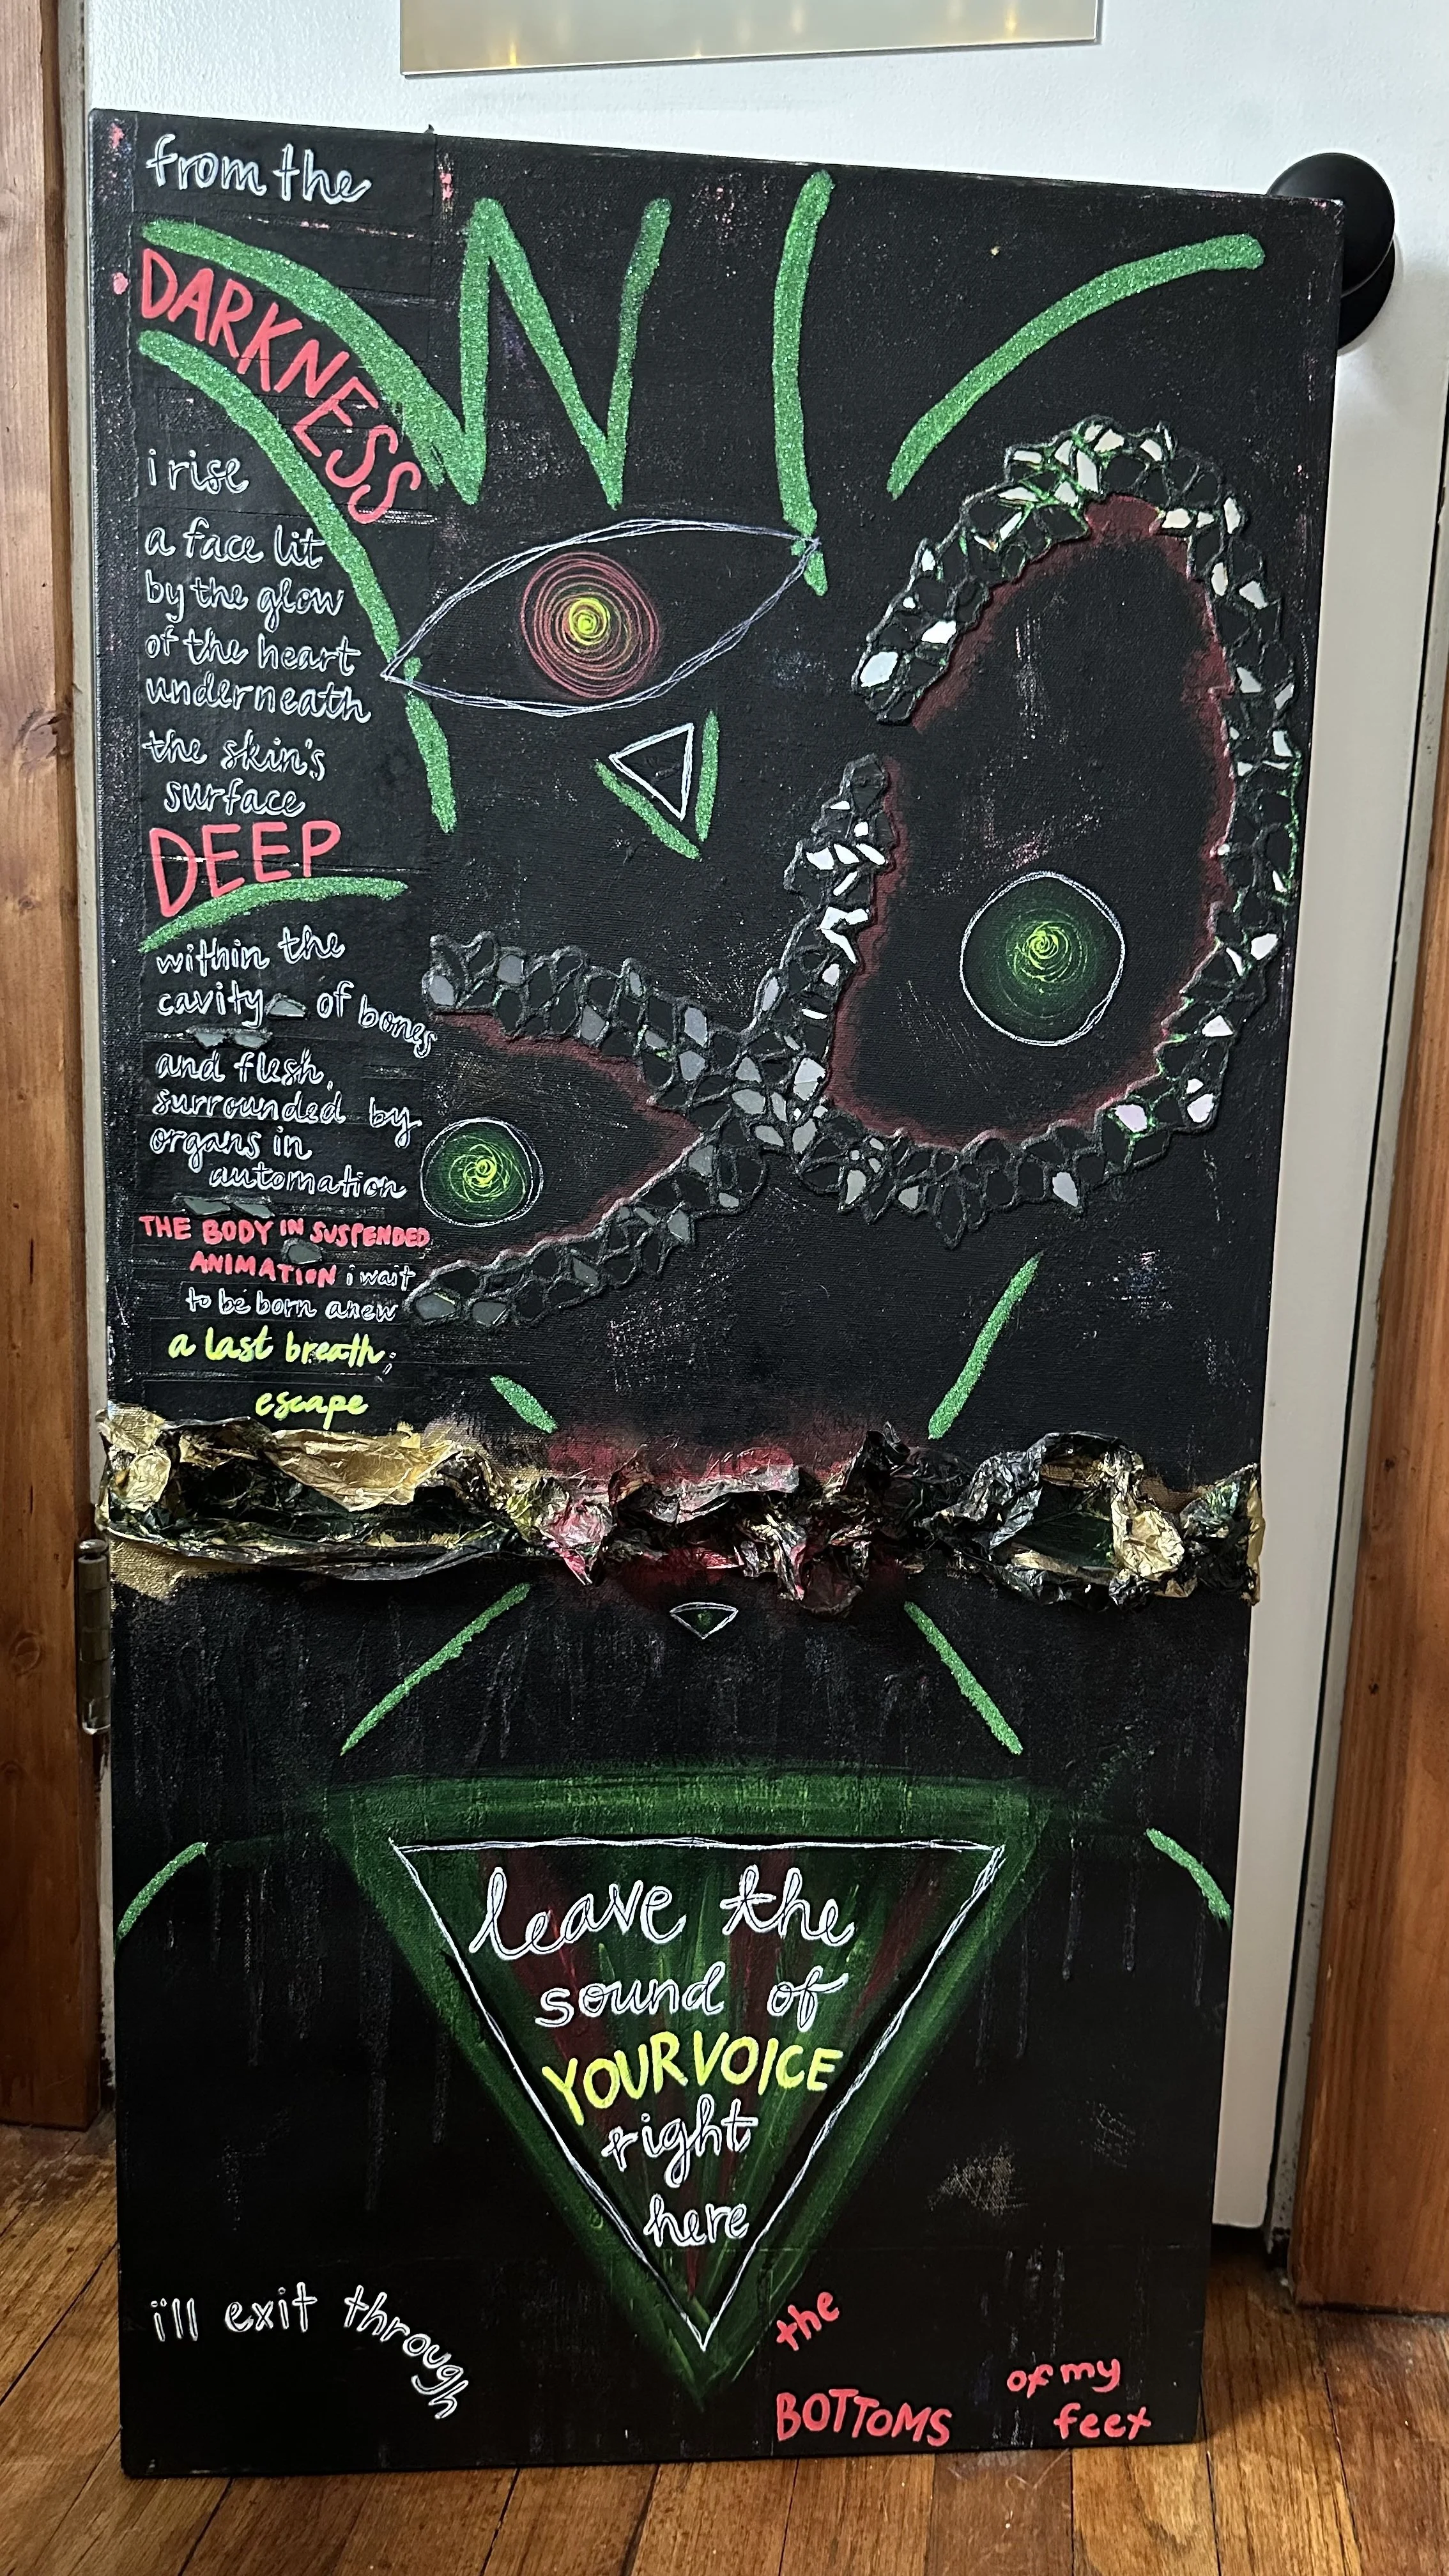 from the
DARKNESS
i rise
a face lit
by the glow
of the heart
underneath
the skin's
surface
DEEP
within the
cavity of bones
and flesh,
surrounded by
organs in
automation
THE BODY IN SUSPENDED
ANIMATION i wait
to be born anew
a last breath;
escape
leave the
sound of
YOUR VOICE
right
here
i'll exit through
the
BOTTOMS
of my
feet